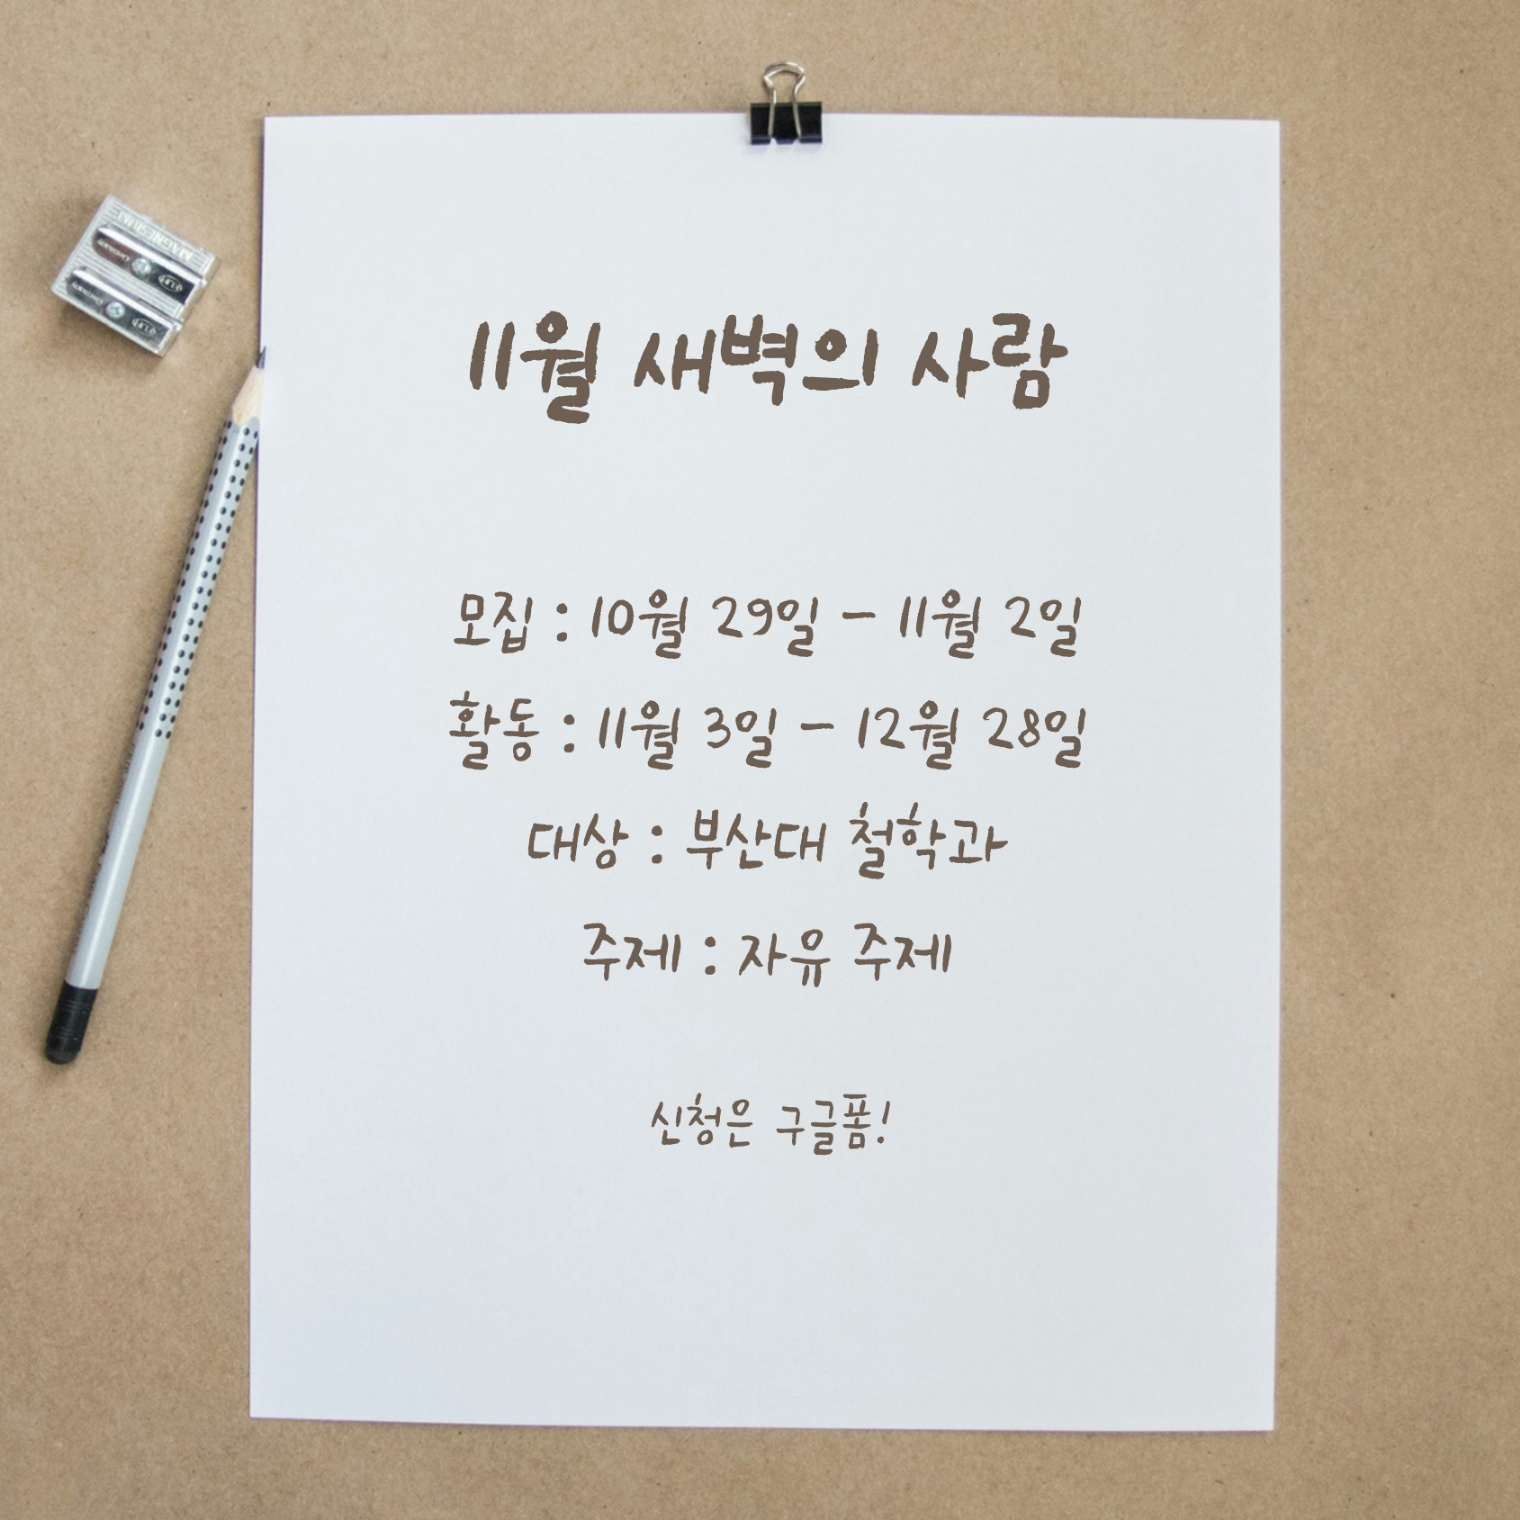 11월 새벽의 사람
모집 : 10월 29일 - 11월 2일
활동 : 11월 3일 - 12월 28일
대상 : 부산대 철학과
주제 : 자유 주제
신청은 구글폼!
MAGNESIUM